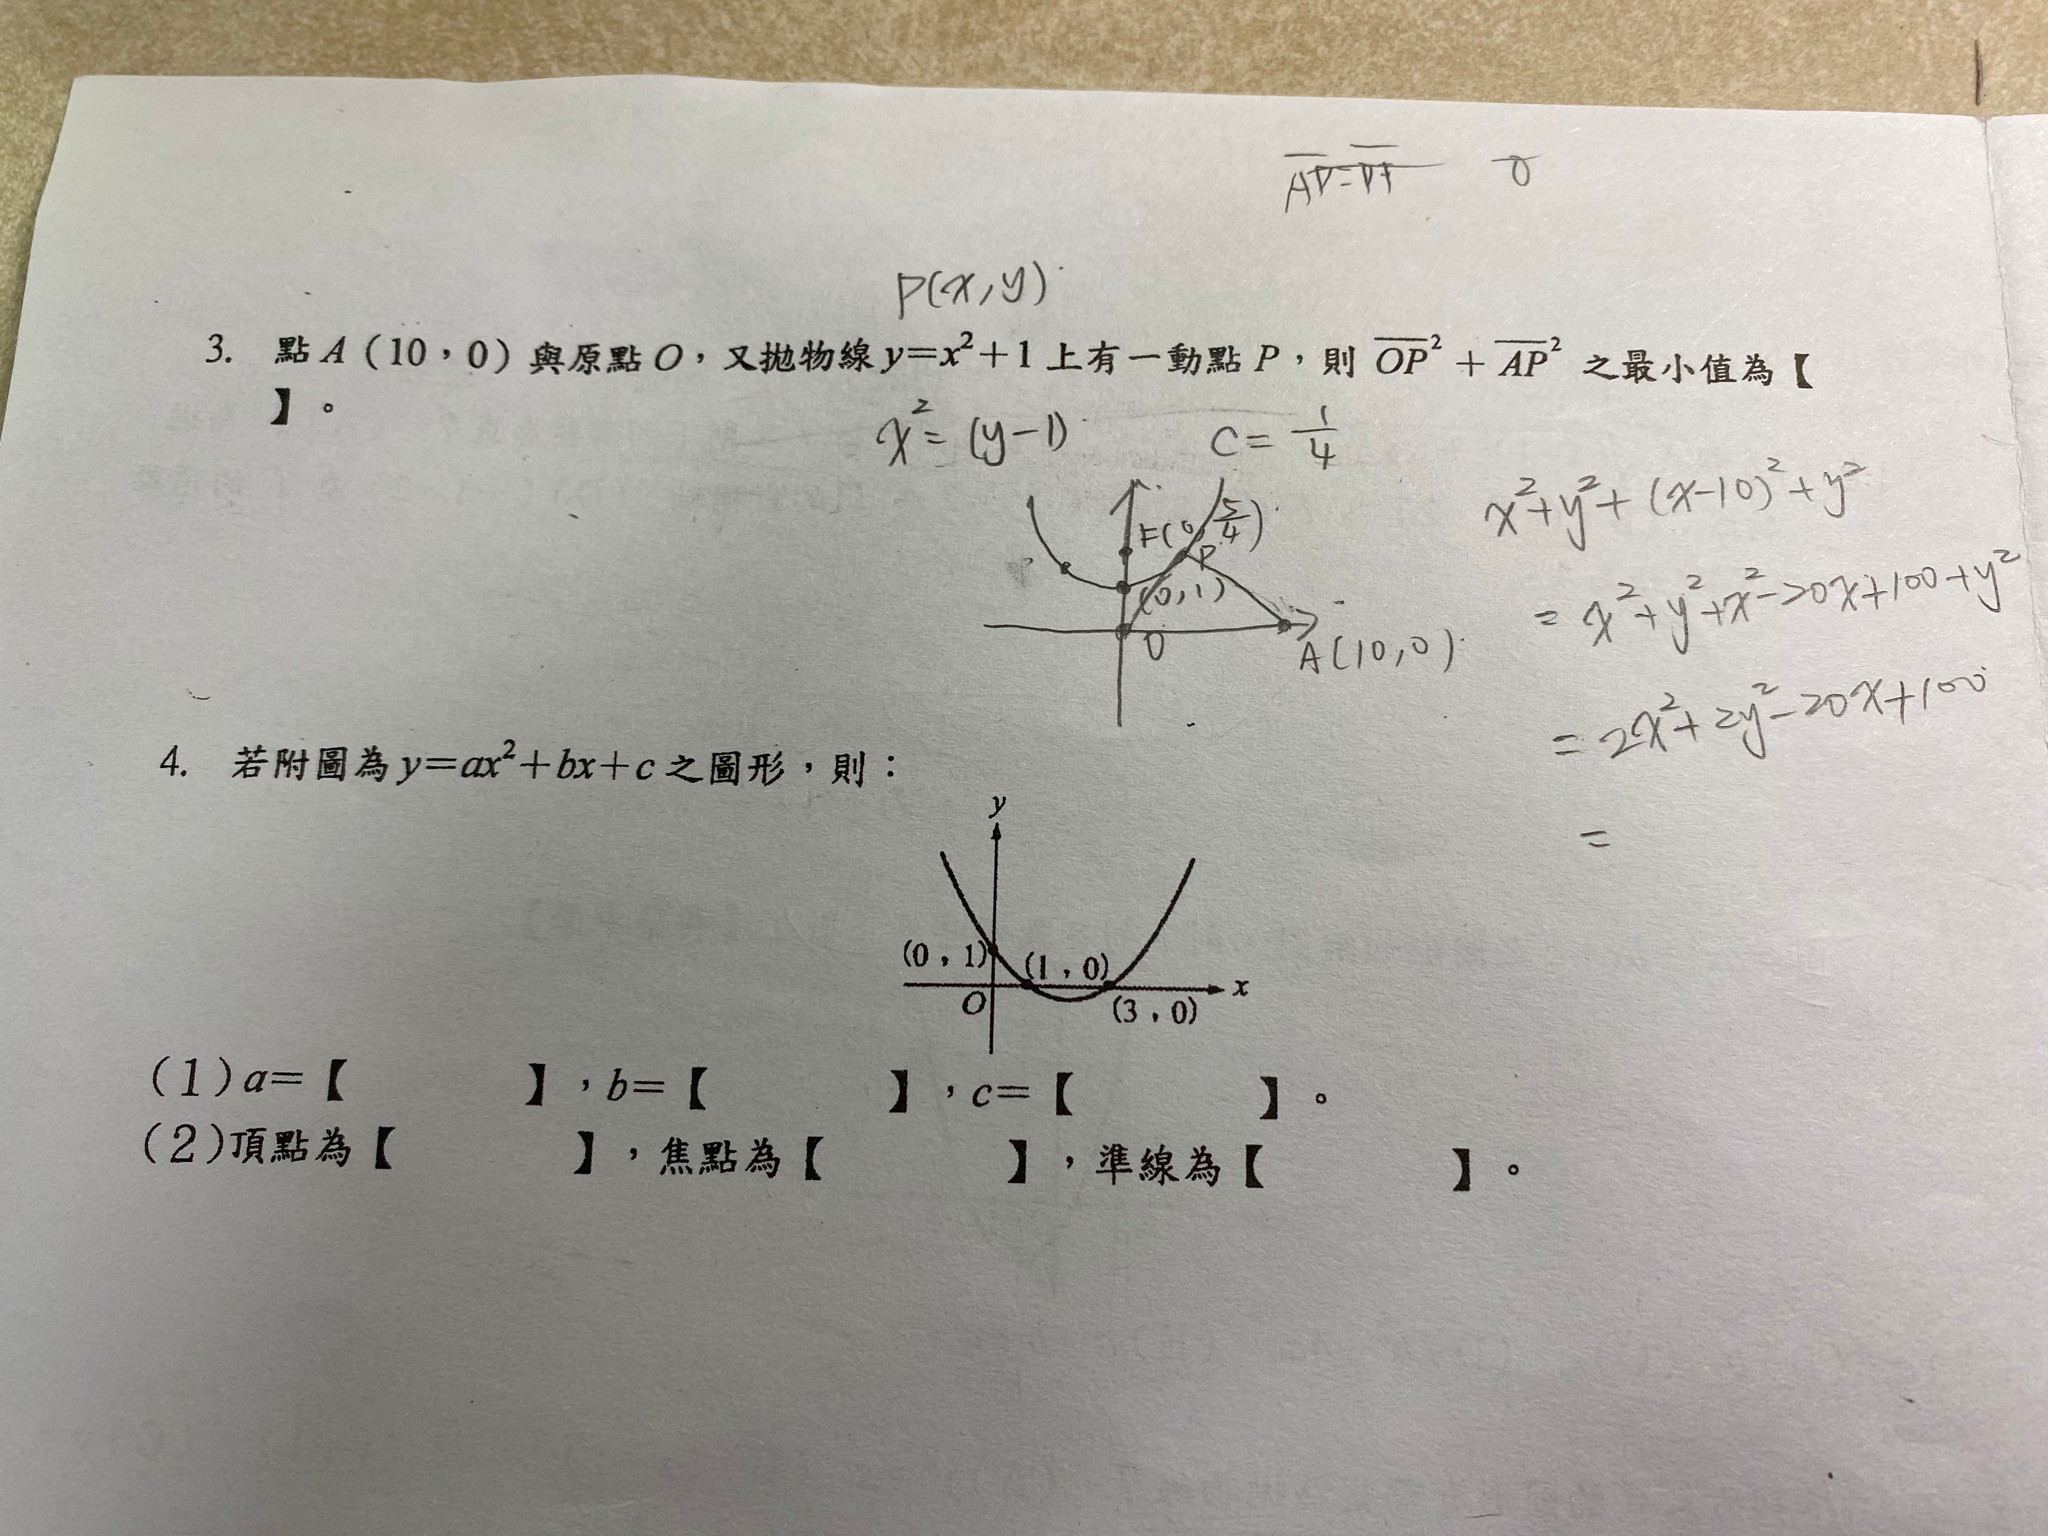 AP=PF
P(x,y)
3. 點 A（10，0）與原點 O，又拋物線 y=x²+1 上有一動點 P，則 OP² + AP² 之最小值為【
】。
x²=(y-1) c=1/4
x²+y²+(x-10)²+y²
F(0,5/4)
P
=x²+y²+x²-20x+100+y²
(0,1)
O
A(10,0)
=2x²+2y²-20x+100
4. 若附圖為 y=ax²+bx+c 之圖形，則：
=
y
(0，1)
(1，0)
O
x
(3，0)
(1)a=【 】，b=【 】，c=【 】。
(2)頂點為【 】，焦點為【 】，準線為【 】。